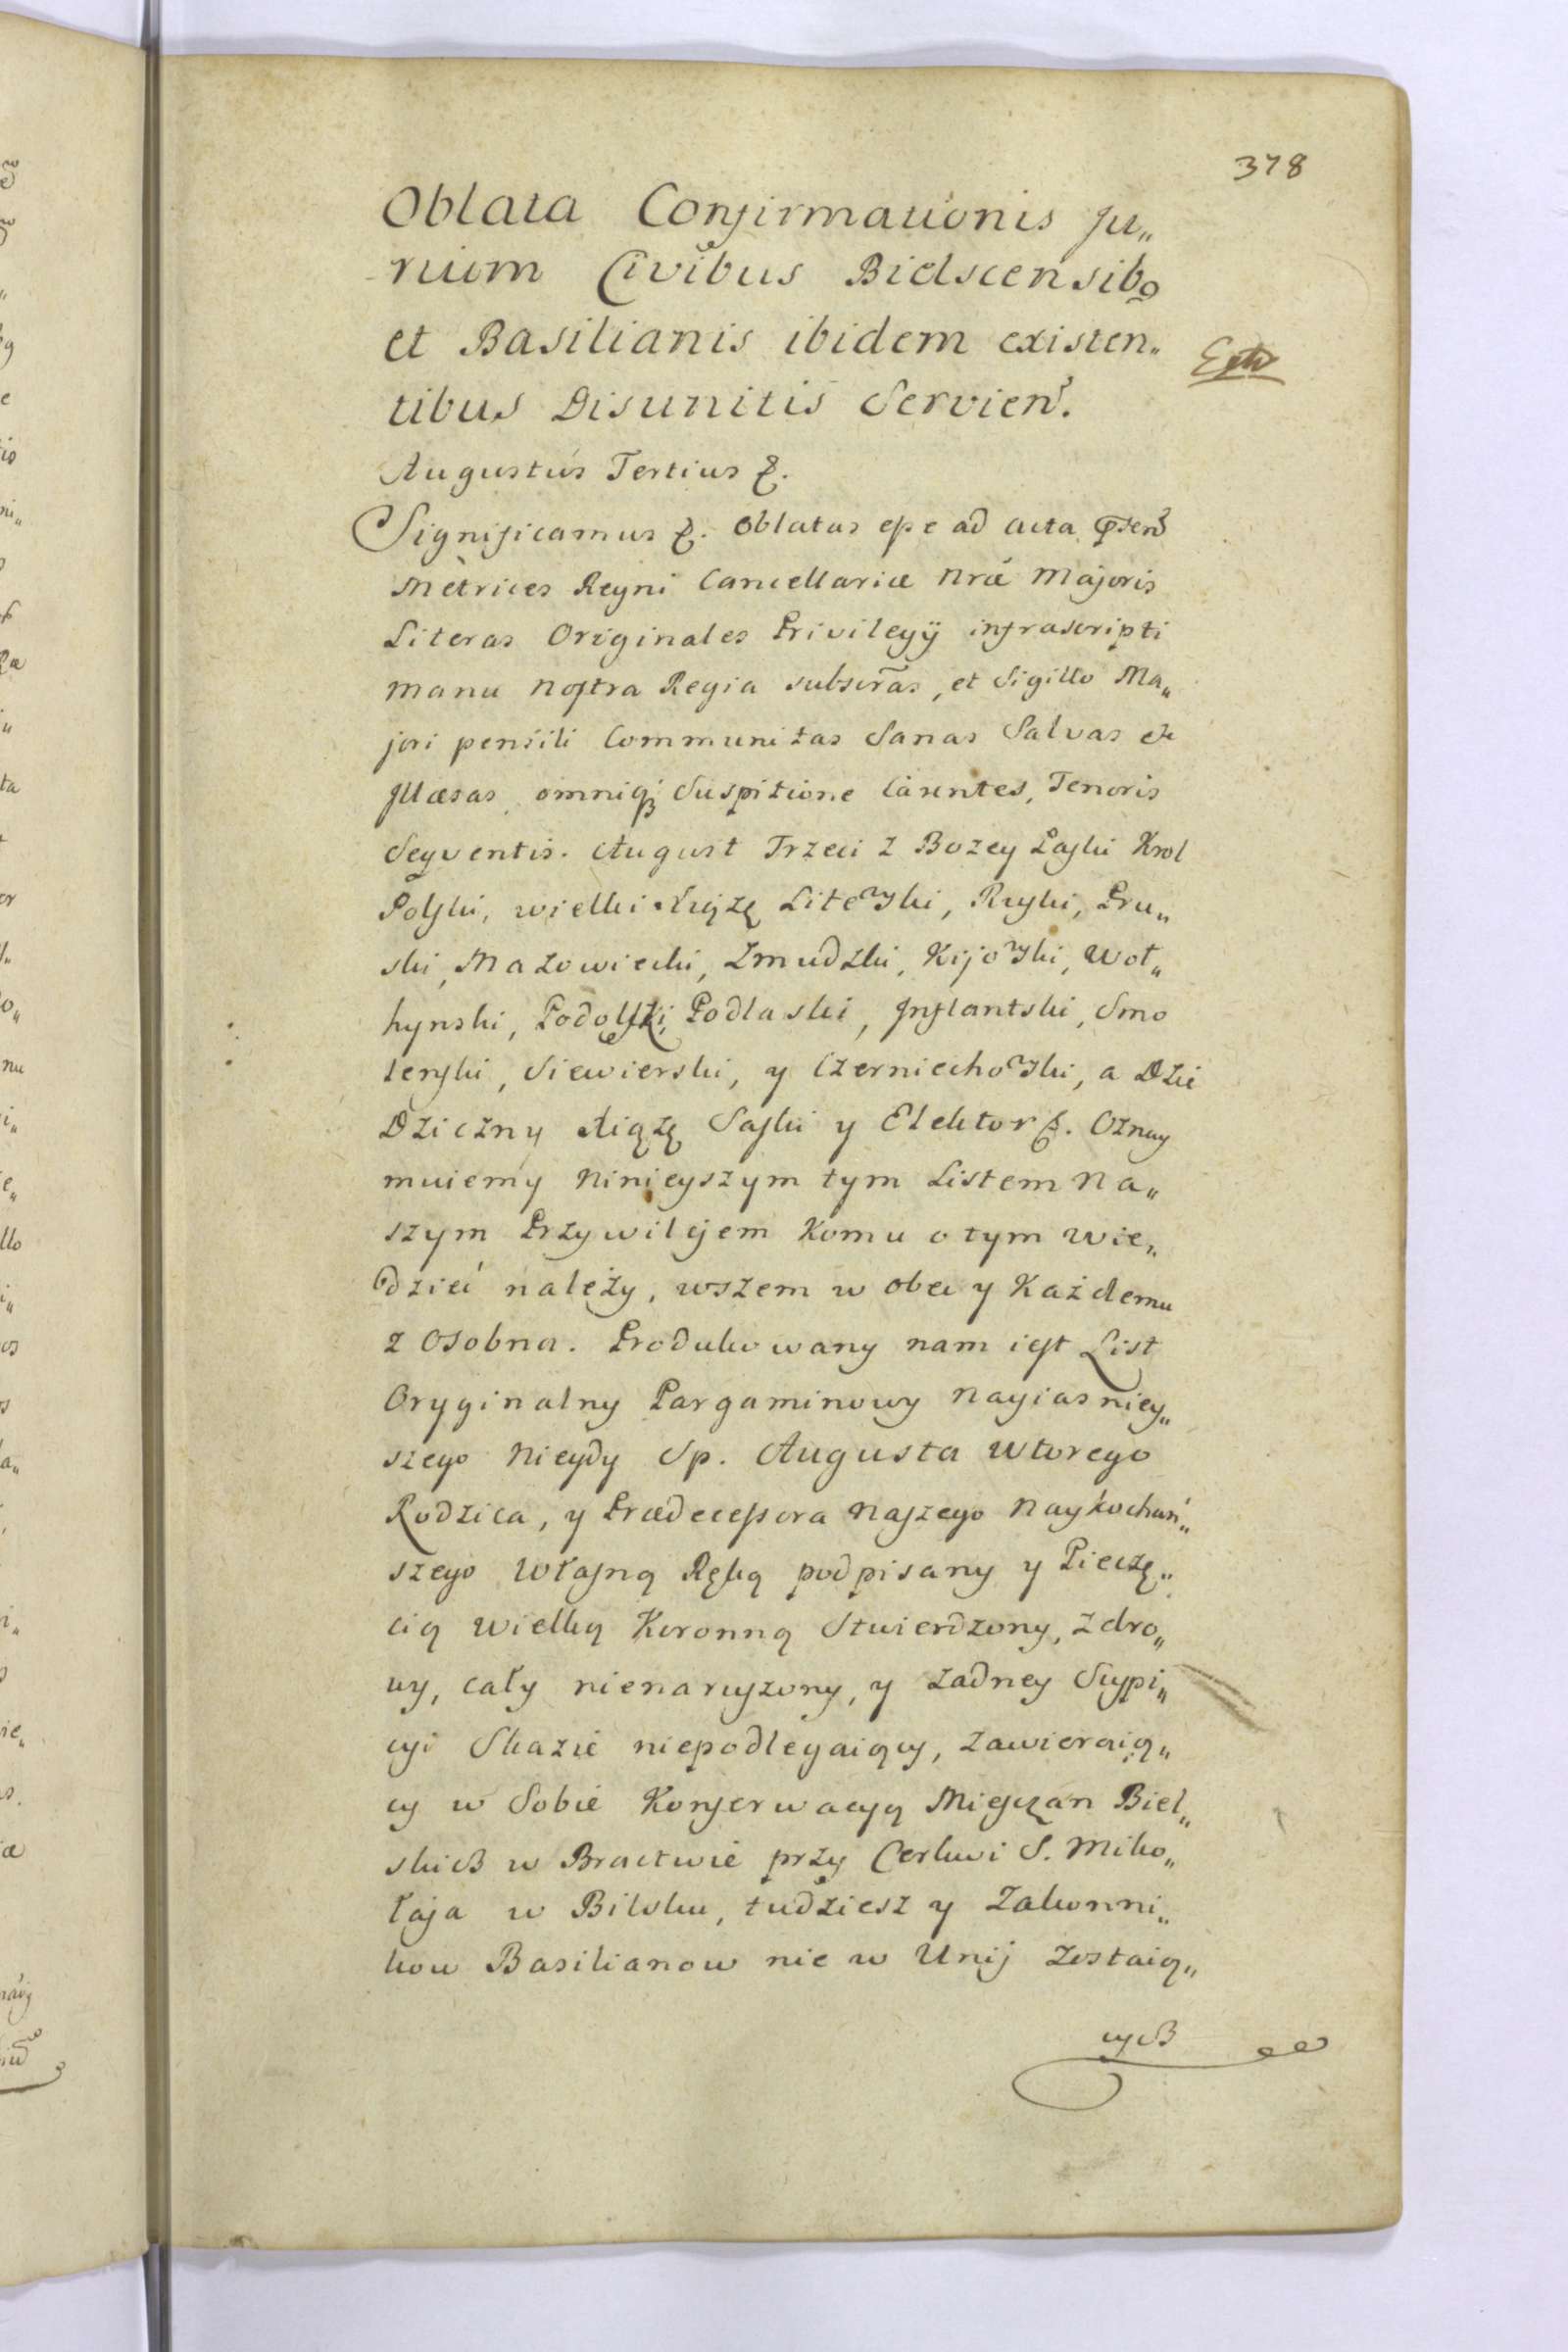 378
Oblata Confirmationis Ju„
rium Civibus Bielscensibꝯ
et Basilianis ibidem existen„
tibus Disunitis Servien.
Augustus Tertius &.
Significamus &. Oblatas esse ad Acta
Metrices Regni Cancellariæ Nræ Majoris
Literas Originales Privilegÿ infrascripti
manu nostra Regia subscr̃as, et Sigillo Ma„
jori pensili Communitas Sanas Salvas et
Illæsas, omniq; Suspitione Carentes, Tenoris
Seqventis. August Trzeci z Bozey Łaski Krol
Polski, wielki Xiążę Litewski, Ruski, Pru„
ski, Mazowiecki, Zmudzki, Kijowski, Woł„
hynski, Podolski, Podlaski, Inflantski, Smo
lenski, Siewierski, y Czerniechowski, a Dzie
Dziczny Xiążę Saski y Elektor &. Oznay
muiemy Ninieyszym tym Listem Na„
szym Przywilejem Komu o tym wie„
dzieć należy, wszem w obec y Każdemu
z Osobna. Produkowany nam iest List
Oryginalny Pargaminowy Nayiasniey„
szego Niegdy Sp. Augusta Wtorego
Rodzica, y Prædecessora Naszego Naykochań„
szego Własną Ręką podpisany y Pieczę„
cią Wielką Koronną Stwierdzony, Zdro„
wy, cały nienaruszony, y Zadney Suspi„
cyi Skazie niepodlegaiący, Zawieraią„
cy w Sobie Konserwacyą Mieszczan Biel„
skich w Bractwie przy Cerkwi S. Miko„
łaja w Bilsku, tudziesz y Zakonni„
kow Basilianow nie w Unij Zostaią„
cych